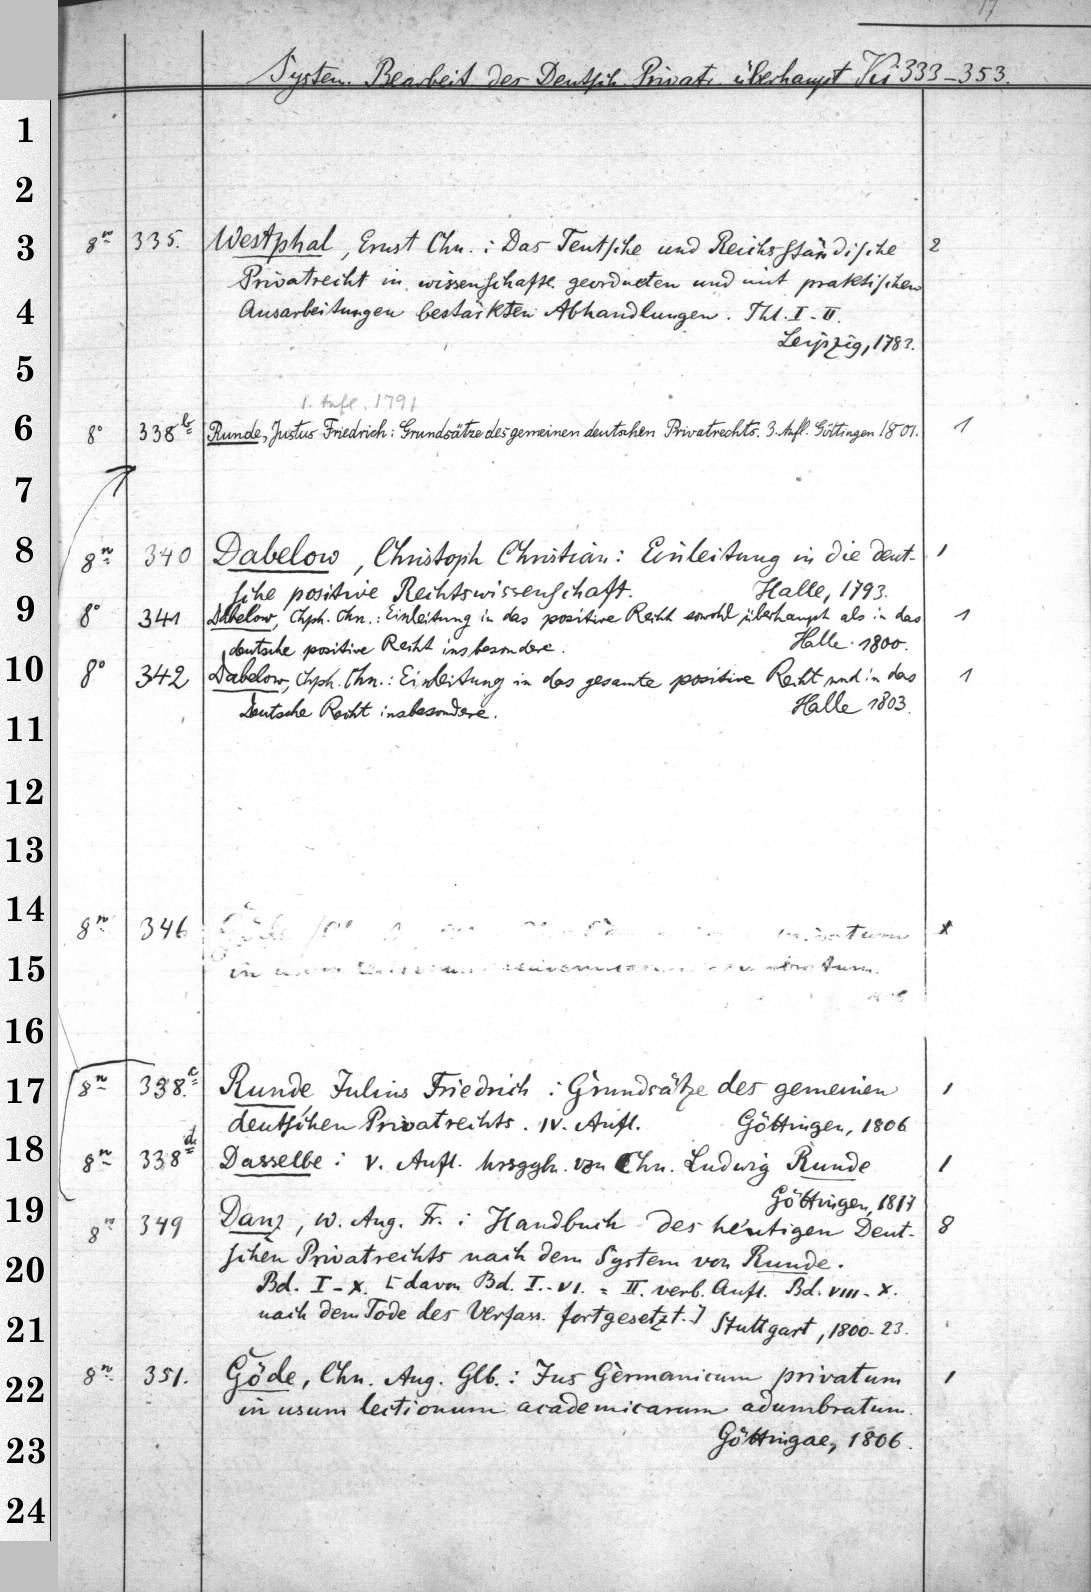 17
System. Bearbeit. des Deutsch. Privatr. überhaupt Ki 333-353.
1
2
3
8º 335. Westphal, Ernst Chn.: Das Teutsche und Reichsständische 2
Privatrecht in wissenschaftl. geordneten und mit praktischen
4
Ausarbeitungen bestärkten Abhandlungen. Thl. I-II.
Leipzig, 1783.
5
1. Aufl. 1791
6
8º 338b Runde, Justus Friedrich: Grundsätze des gemeinen deutschen Privatrechts. 3. Aufl. Göttingen 1801. 1
7
8
8º 340 Dabelow, Christoph Christian: Einleitung in die deut- 1
sche positive Rechtswissenschaft. Halle, 1793.
9
8º 341 Dabelow, Chph. Chn.: Einleitung in das positive Recht sowohl überhaupt als in das 1
deutsche positive Recht insbesondere. Halle 1800.
10
8º 342 Dabelow, Chph. Chn.: Einleitung in das gesamte positive Recht und in das 1
Deutsche Recht insbesondere. Halle 1803.
11
12
13
14
8º 346 privatum x
15
in usum
16
17
8º 338.c Runde Julius Friedrich: Grundsätze des gemeinen 1
deutschen Privatrechts. IV. Aufl. Göttingen, 1806
18
8º 338d Dasselbe: V. Aufl. hrsggb. von Chn. Ludwig Runde 1
Göttingen, 1817
19
8º 349 Danz, W. Aug. Fr.: Handbuch des heutigen Deut- 8
schen Privatrechts nach dem System von Runde.
20
Bd. I-X. [davon Bd. I.-VI. = II. verb. Aufl. Bd. VIII-X.
nach dem Tode des Verfass. fortgesetzt.] Stuttgart, 1800-23.
21
22
8º 351. Göde, Chn. Aug. Glb.: Jus Germanicum privatum 1
in usum lectionum academicarum adumbratum.
Göttingae, 1806.
23
24